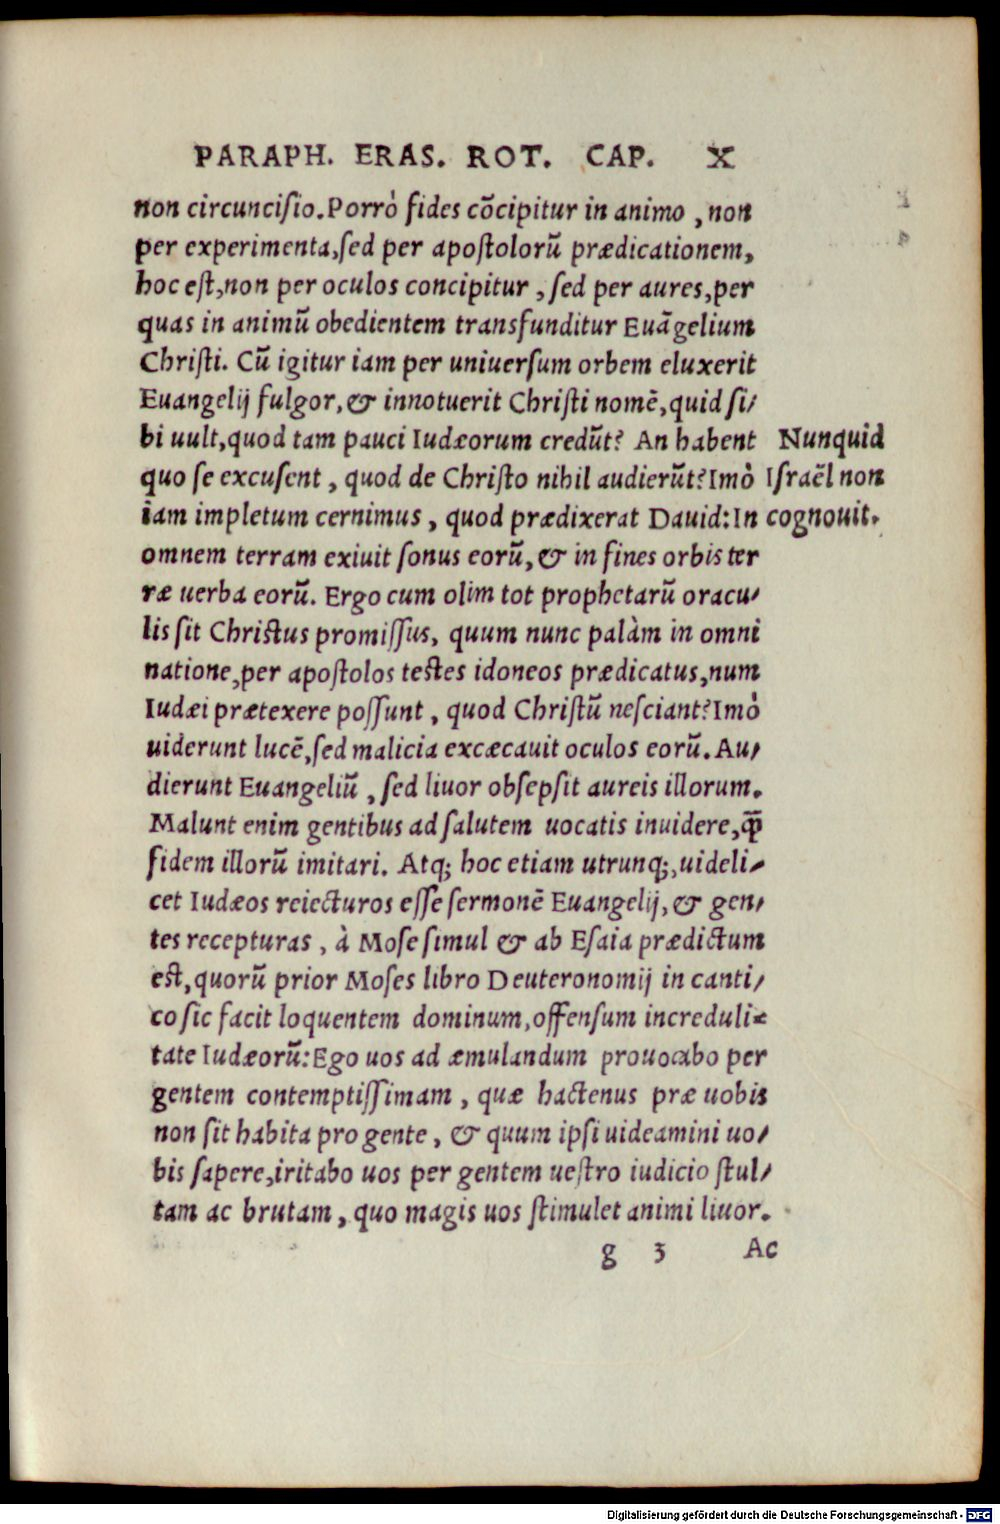 PARAPH. ERAS. ROT. CAP. X
non circunciſio. Porrò fides cõcipitur in animo, non
per experimenta, ſed per apoſtolorũ prædicationem,
hoc eſt, non per oculos concipitur, ſed per aures, per
quas in animũ obedientem transfunditur Euãgelium
Chriſti. Cũ igitur iam per uniuerſum orbem eluxerit
Euangelij fulgor, & innotuerit Chriſti nomẽ, quid ſi/
bi uult, quod tam pauci Iudæorum credũt? An habent
quo ſe excuſent, quod de Chriſto nihil audierũt? Imò
iam impletum cernimus, quod prædixerat Dauid: In
omnem terram exiuit ſonus eorũ, & in fines orbis ter
ræ uerba eorũ. Ergo cum olim tot prophetarũ oracu/
lis ſit Chriſtus promiſſus, quum nunc palàm in omni
natione, per apoſtolos teſtes idoneos prædicatus, num
Iudæi prætexere poſſunt, quod Chriſtũ neſciant? Imò
uiderunt lucẽ, ſed malicia excæcauit oculos eorũ. Au/
dierunt Euangeliũ, ſed liuor obſepſit aureis illorum.
Malunt enim gentibus ad ſalutem uocatis inuidere, q̃
fidem illorũ imitari. Atq; hoc etiam utrunq;, uideli/
cet Iudæos reiecturos eſſe ſermonẽ Euangelij, & gen/
tes recepturas, à Moſe ſimul & ab Eſaia prædictum
eſt, quorũ prior Moſes libro Deuteronomij in canti/
co ſic facit loquentem dominum, offenſum increduli/
tate Iudæorũ: Ego uos ad æmulandum prouocabo per
gentem contemptiſſimam, quæ hactenus præ uobis
non ſit habita pro gente, & quum ipſi uideamini uo/
bis ſapere, iritabo uos per gentem ueſtro iudicio ſtul/
tam ac brutam, quo magis uos ſtimulet animi liuor.
g 3 Ac
Nunquid
Iſraẽl non
cognouit.
Digitalisierung gefördert durch die Deutsche Forschungsgemeinschaft - DFG